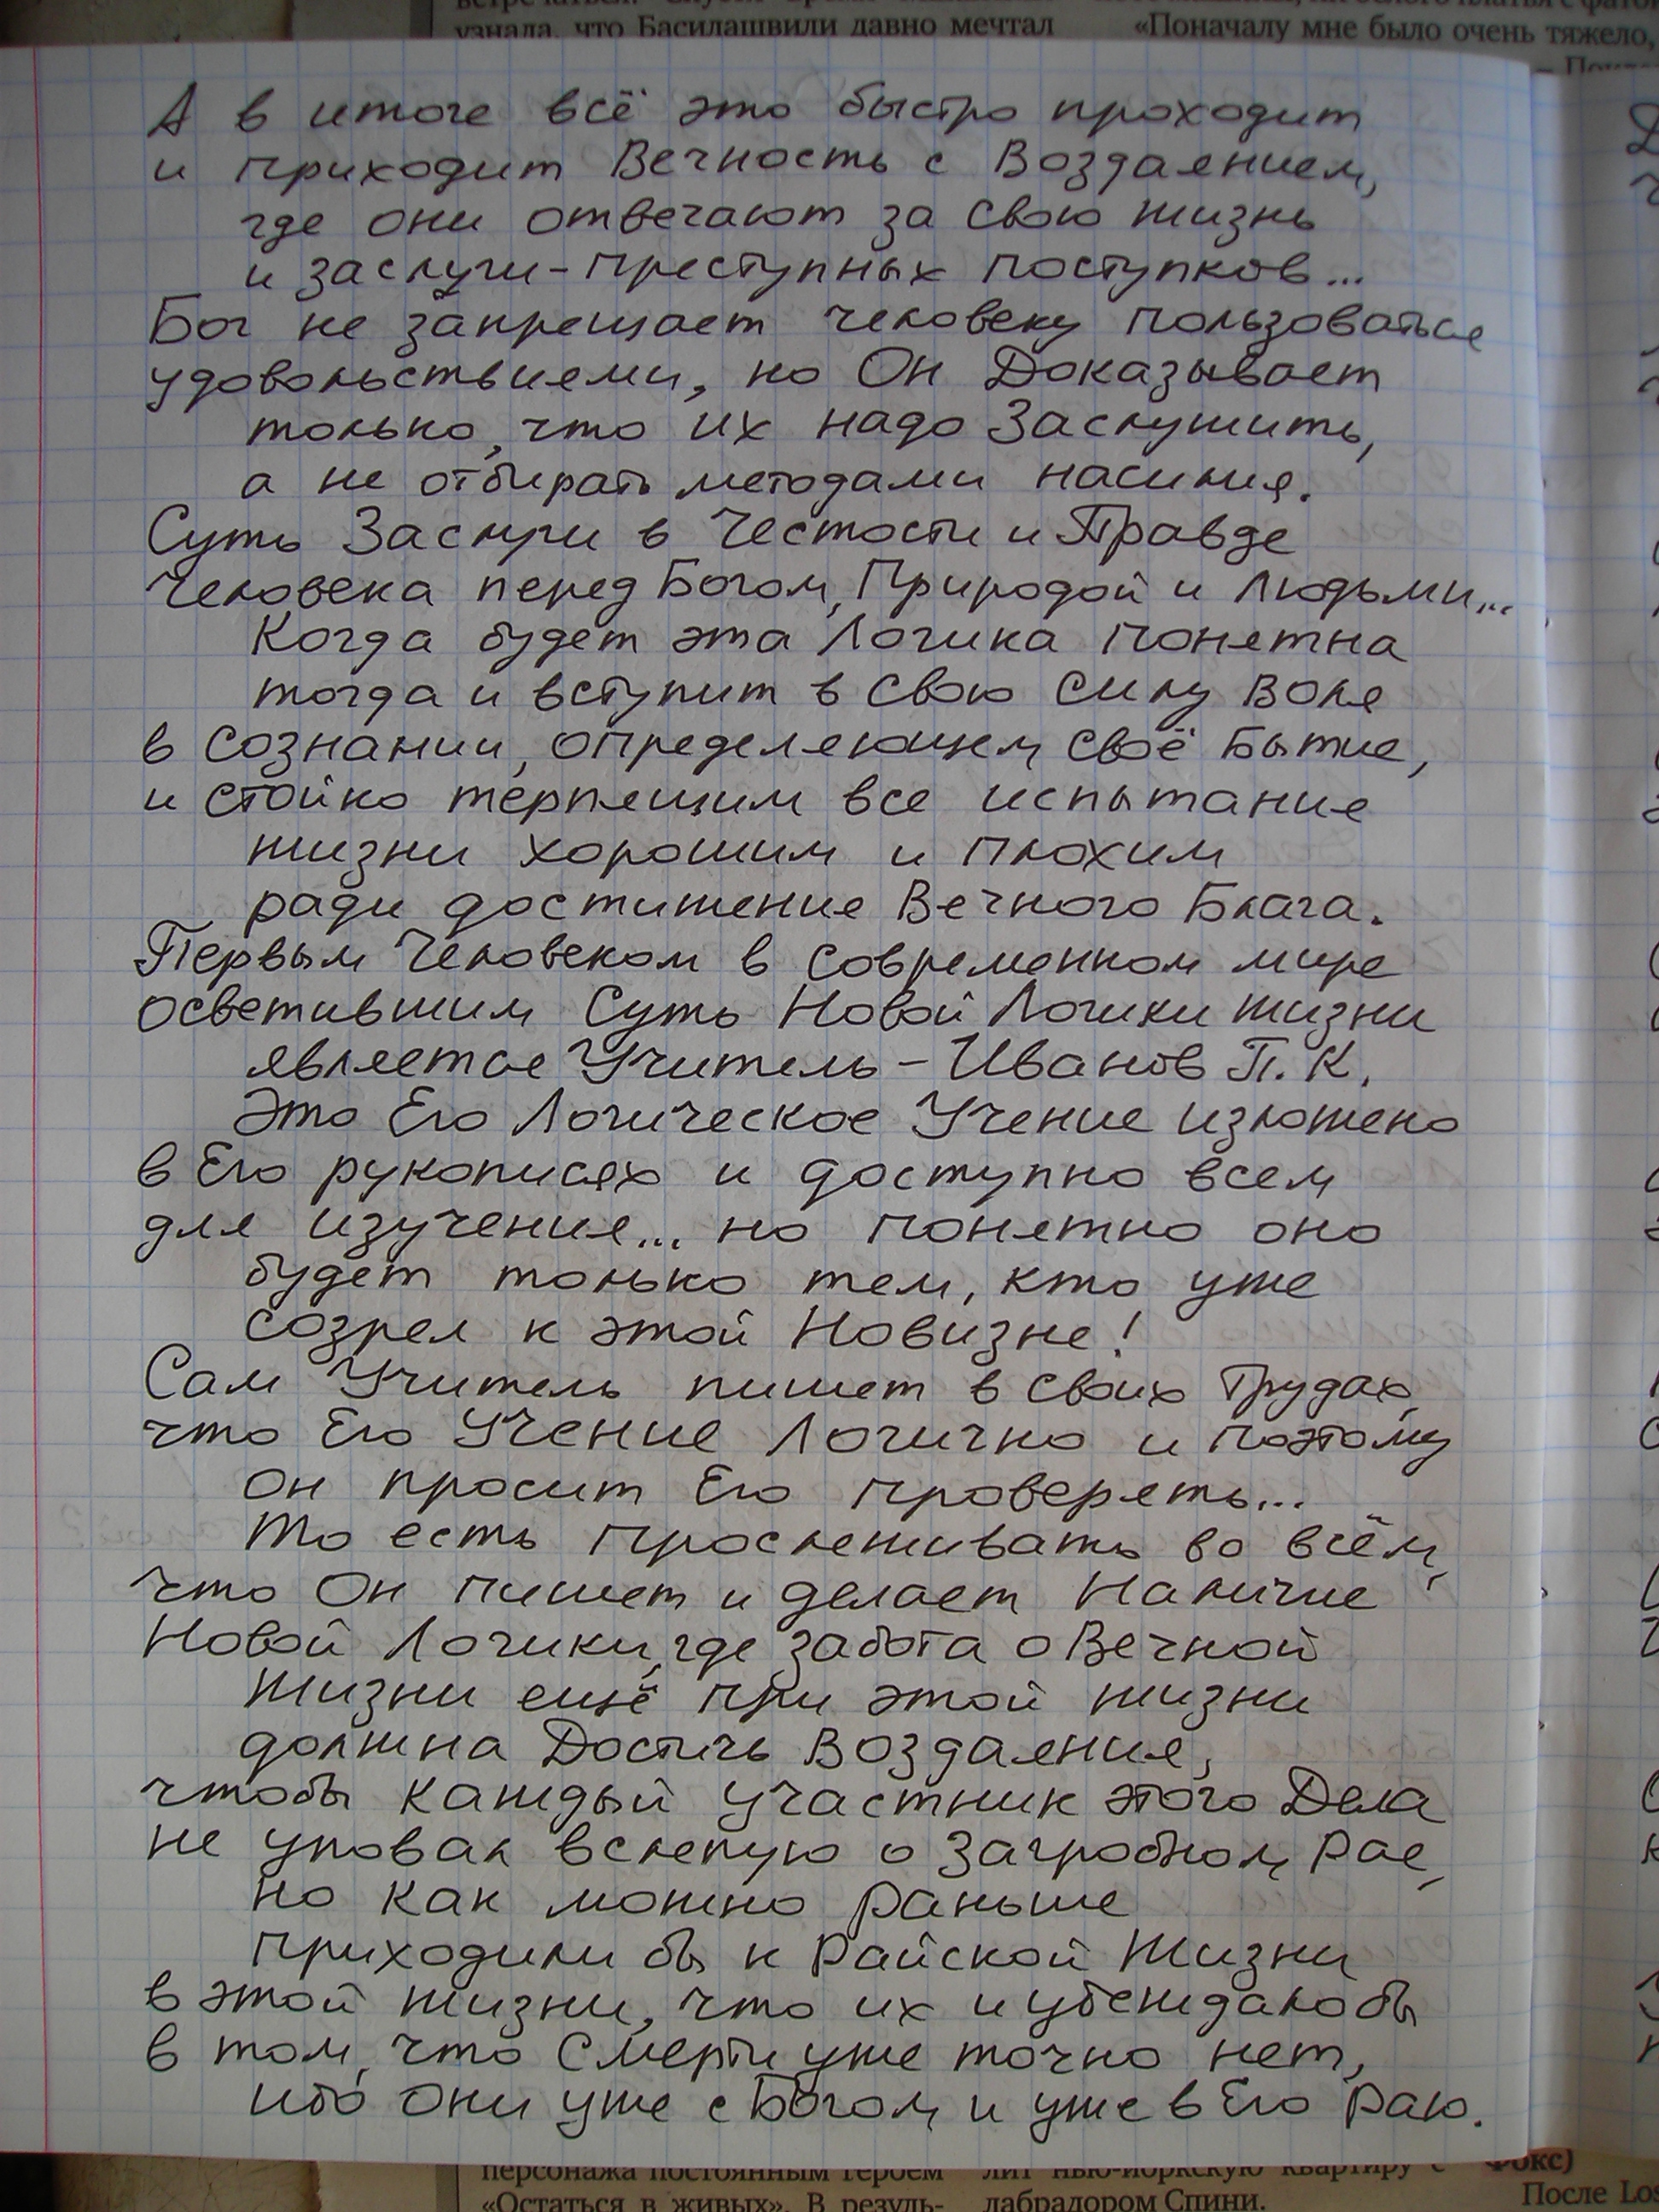 узнала, что Басилашвили давно мечтал
«Поначалу мне было очень тяжело,
А в итоге всё это быстро проходит
и приходит Вечность с Воздаянием,
где они отвечают за свою жизнь
и заслуги-преступных поступков...
Бог не запрещает человеку пользоваться
удовольствиями, но Он Доказывает
только, что их надо Заслужить,
а не отбирать методами насилия.
Суть Заслуги в Честости и Правде
Человека перед Богом, Природой и Людьми...
Когда будет эта Логика понятна
тогда и вступит в свою силу Воля
в сознании, определяющем своё Бытие,
и стойко терпящим все испытания
жизни хорошим и плохим
ради достижения Вечного Блага.
Первым Человеком в современном мире
осветившим Суть Новой Логики жизни
является Учитель - Иванов П.К.
Это Его Логическое Учение изложено
в Его рукописях и доступно всем
для изучения... но понятно оно
будет только тем, кто уже
созрел к этой Новизне!
Сам Учитель пишет в своих Трудах,
что Его Учение Логично и поэтому
Он просит Его проверять...
То есть прослеживать во всём,
что Он пишет и делает Наличие
Новой Логики, где забота о Вечной
Жизни ещё при этой жизни
должна Достичь Воздаяния,
чтобы каждый Участник этого Дела
не уповал вслепую о Загробном Рае,
но как можно раньше
приходили бы к Райской Жизни
в этой жизни, что их и убеждало бы
в том, что Смерти уже точно нет,
ибо они уже с Богом и уже в Его Раю.
персонажа постоянным героем
лит нью-йоркскую квартиру с
Фокс)
«Остаться в живых». В резуль-
лабрадором Спини.
После Los